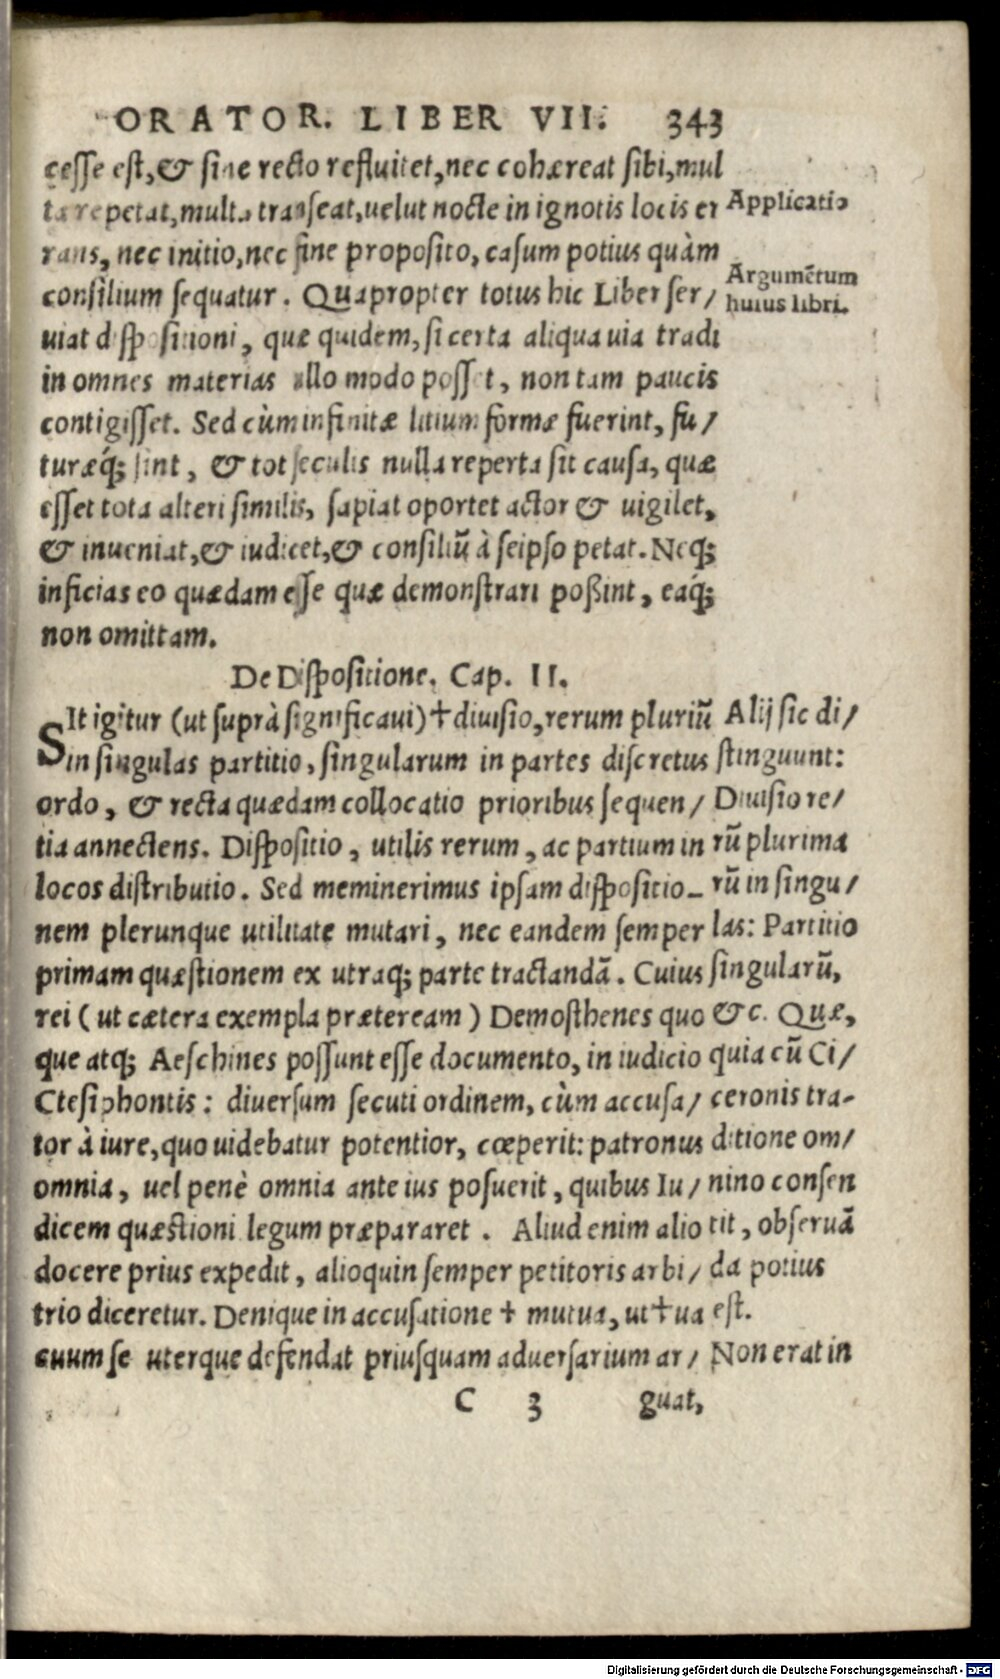 ORATOR. LIBER VII. 343
cesse est, & sine recto refluitet, nec cohæreat sibi, mul
ta repetat, multa transeat, uelut nocte in ignotis locis er
rans, nec initio, nec fine proposito, casum potius quàm
consilium sequatur. Quapropter totus hic Liber ser/
uiat dispositioni, quæ quidem, si certa aliqua uia tradi
in omnes materias ullo modo posset, non tam paucis
contigisset. Sed cùm infinitæ litium formæ fuerint, fu/
turæq́; sint, & tot seculis nulla reperta sit causa, quæ
esset tota alteri similis, sapiat oportet actor & uigilet,
& inueniat, & iudicet, & consiliũ à seipso petat. Neq;
inficias eo quædam esse quæ demonstrari poßint, eaq́;
non omittam.
Applicatio
Argumẽtum
huius libri.
De Dispositione. Cap. II.
SIt igitur (ut suprà significaui) † diuisio, rerum pluriũ
in singulas partitio, singularum in partes discretus
ordo, & recta quædam collocatio prioribus sequen/
tia annectens. Dispositio, utilis rerum, ac partium in
locos distributio. Sed meminerimus ipsam dispositio-
nem plerunque utilitate mutari, nec eandem semper
primam quæstionem ex utraq; parte tractandã. Cuius
rei (ut cætera exempla præteream) Demosthenes quo
que atq; Aeschines possunt esse documento, in iudicio
Ctesiphontis: diuersum secuti ordinem, cùm accusa/
tor à iure, quo uidebatur potentior, cœperit: patronus
omnia, uel penè omnia ante ius posuerit, quibus Iu/
dicem quæstioni legum præpararet. Aliud enim alio
docere prius expedit, alioquin semper petitoris arbi/
trio diceretur. Denique in accusatione † mutua, ut † ua
cuum se uterque defendat priusquam aduersarium ar/
Alij sic di/
stinguunt:
Diuisio re/
rũ plurima
rũ in singu/
las: Partitio
singularũ,
&c. Quæ,
quia cũ Ci/
ceronis tra-
ditione om/
nino consen
tit, obseruã
da potius
est.
Non erat in
C 3 guat,
Digitalisierung gefördert durch die Deutsche Forschungsgemeinschaft - DFG